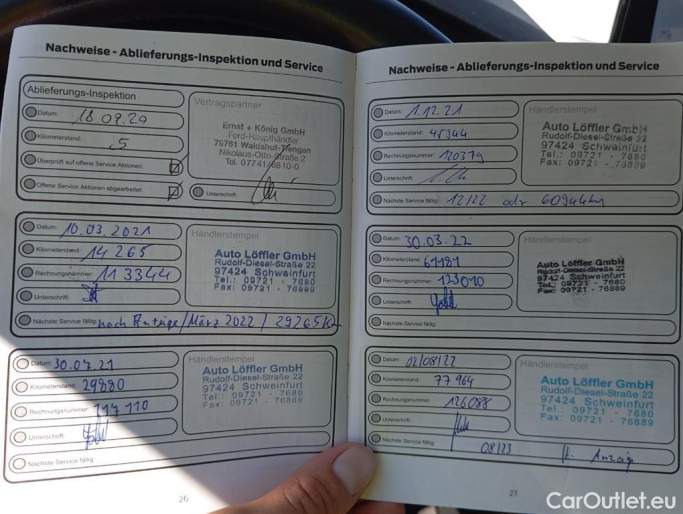 Nachweise - Ablieferungs-Inspektion und Service
Ablieferungs-Inspektion
Datum: 18.09.20
Kilometerstand: 5
Überprüft auf offene Service Aktionen:
Offene Service Aktionen abgearbeitet:
Vertragspartner
Ernst + König GmbH
Ford-Haupthändler
79761 Waldshut-Tiengen
Nikolaus-Otto-Straße 2
Tel. 07741/6810-0
Unterschrift:
Datum: 10.03.2021
Kilometerstand: 14265
Rechnungsnummer: 113344
Unterschrift:
Nächste Service fällig: nach Anzeige/März 2022 / 29265 Km
Händlerstempel
Auto Löffler GmbH
Rudolf-Diesel-Straße 22
97424 Schweinfurt
Tel.: 09721 - 7680
Fax: 09721 - 76889
Datum: 30.07.21
Kilometerstand: 29880
Rechnungsnummer: 117110
Unterschrift:
Nächste Service fällig:
Händlerstempel
Auto Löffler GmbH
Rudolf-Diesel-Straße 22
97424 Schweinfurt
Tel.: 09721 - 7680
Fax: 09721 - 76889
26
Nachweise - Ablieferungs-Inspektion und Service
Datum: 1.12.21
Kilometerstand: 45944
Rechnungsnummer: 120379
Unterschrift:
Nächste Service fällig: 12/22 odr 60944km
Händlerstempel
Auto Löffler GmbH
Rudolf-Diesel-Straße 22
97424 Schweinfurt
Tel.: 09721 - 7680
Fax: 09721 - 76889
Datum: 30.03.22
Kilometerstand: 61181
Rechnungsnummer: 123010
Unterschrift:
Nächste Service fällig:
Händlerstempel
Auto Löffler GmbH
Rudolf-Diesel-Straße 22
97424 Schweinfurt
Tel.: 09721 - 7680
Fax: 09721 - 76889
Datum: 02/08/22
Kilometerstand: 77964
Rechnungsnummer: 126088
Unterschrift:
Nächste Service fällig: 08/23
Händlerstempel
Auto Löffler GmbH
Rudolf-Diesel-Straße 22
97424 Schweinfurt
Tel.: 09721 - 7680
Fax: 09721 - 76889
27
CarOutlet.eu